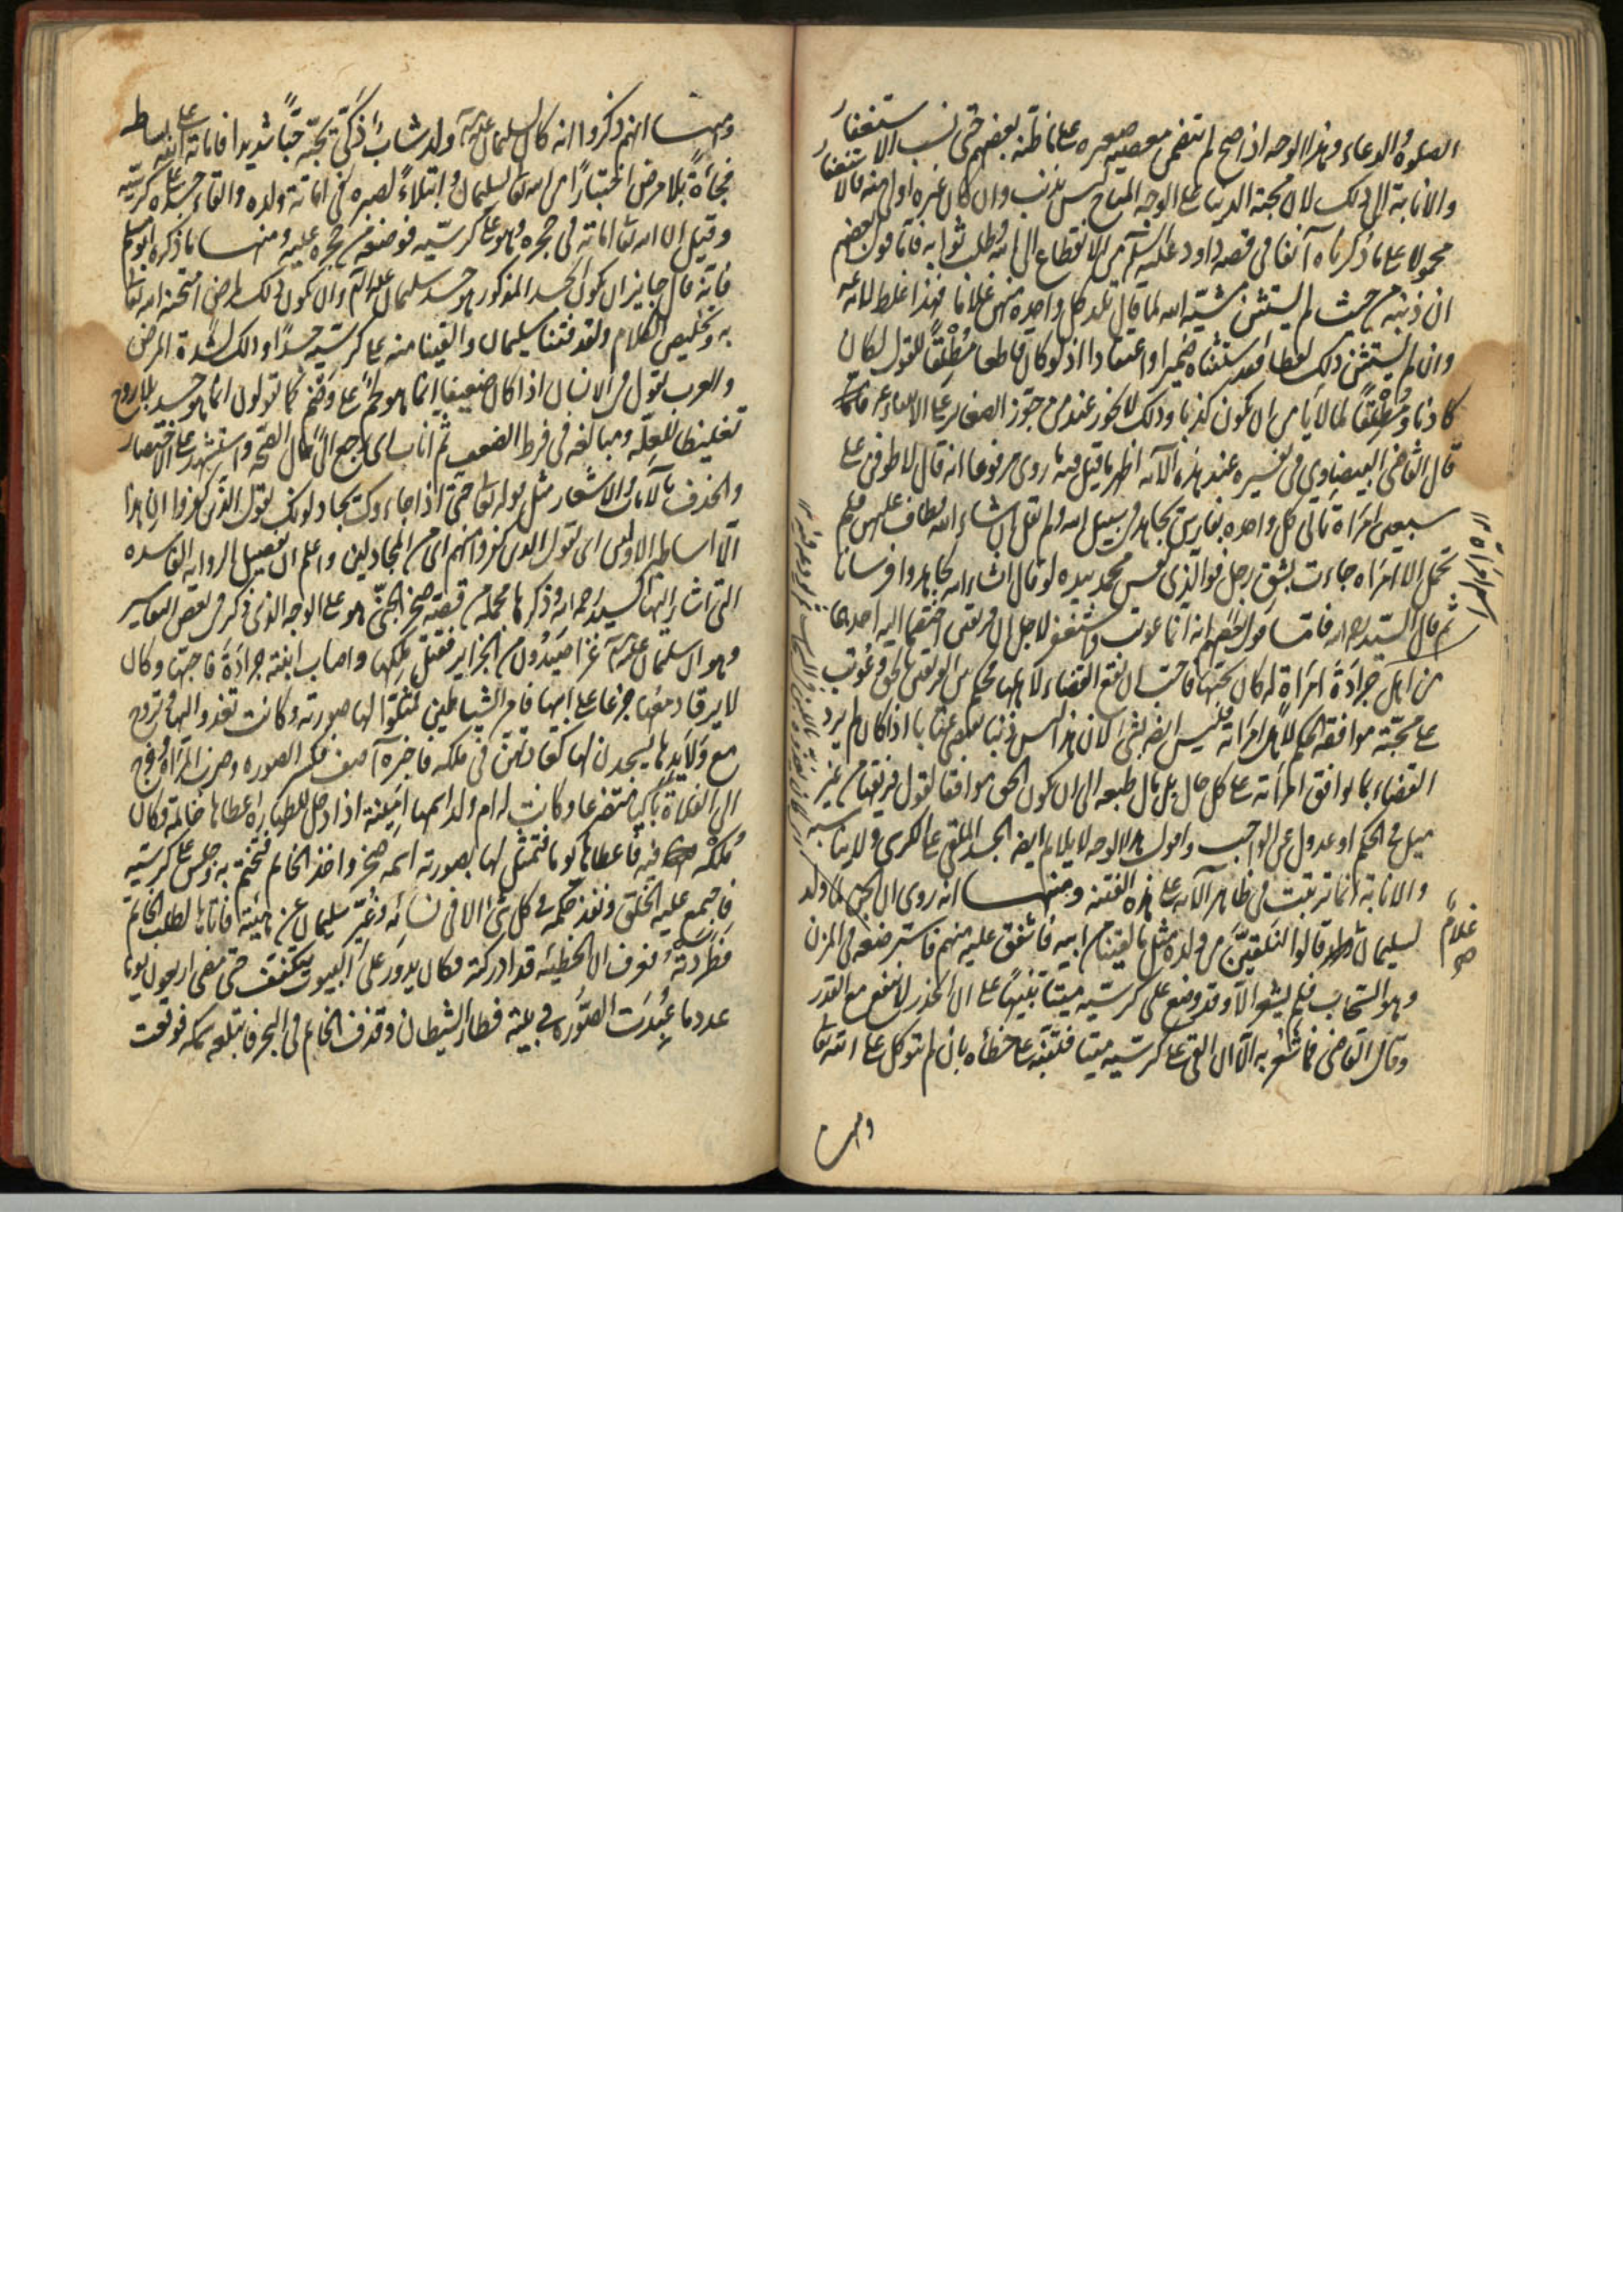 الصلوة والدعاء وهذا الوجه اذا صح لم يتضمن معصية صغيره على ما ظنه بعضهم حتى نسب الاستغفار
والانابة الى ذلك لان محبة الدنيا على الوجه المباح ليس بذنب وان كان غيره اولى منه فالاستغفار
محمولا على ما ذكرناه آنفا في قصة داود عليه السلم من الانقطاع الى الله وطلب ثوابه فاما قول بعضهم
ان ذنبه من حيث لم يستثن مشية الله لما قال تلد كل واحدة منهن غلاما فهذا غلط لانه ع
وان لم يستثن ذلك لفظا فقد استثناه ضميرا او اعتقادا اذ لو كان قاطعا مطلقا للقول لكان
كاذبا او مطلقا لما لا يأمن ان يكون كذبا وذلك لا يجوز عند من جوز الصغاير على الانبياء ع
قال القاضي البيضاوي في تفسيره عند هذه الآية اظهر ما قيل فيه ما روى مرفوعا انه قال لاطوفن على
سبعين امرأة تأتي كل واحده بفارس يجاهد في سبيل الله ولم يقل ان شاء الله فطاف عليهن فلم
تحمل الا امرأه جاءت بشق رجل فوالذي نفس محمد بيده لو قال ان شاء الله لجاهدوا فرسانا
ثم قال السيد رحمه الله فاما قول بعضهم انه انما عوتب واستغفر لاجل ان فريقين اختصما اليه احدهما
من اهل جرادة امرأة له كان يحبها فاحب ان يقع القضاء لاهلها فحكم بين الفريقين بالحق وعوتب
على محبته موافقة الحكم لاهل امرأته فليس ايضا بشئ لان هذا ليس ذنبا يقتضي عتابا اذا كان لم يرد
القضاء بما يوافق امرأته على كل حال بل مال طبعه الى ان يكون الحق موافقا لقول فريقها من غير
ميل في الحكم او عدول عن الواجب واقول هذا الوجه لا يلايم ايضا الجسد الملقى على الكرسي ولا يناسبه
والانابة انما ترتبت في ظاهر الآية على هذه الفتنة ومنها انه روى ان الجن لما ولد
لسليمان قالوا لنلقين من ولده مثل ما لقينا من ابيه فاشفق عليه منهم فاسترضعه في المزن
وهو السحاب فلم يشعر الا وقد وضع على كرسيه ميتا تنبيها على ان الحذر لا ينفع مع القدر
وقال القاضي فما شعر به الا ان القي على كرسيه ميتا فتنبه على خطأه بان لم يتوكل على الله تعالى
غلام صح
ومنها
ومنها انهم ذكروا انه كان لسليمان ع ولد شاب ذكي يحبه حبا شديدا فاماته الله على بساطه
فجأة بلا مرض اختبارا من الله تعالى لسليمان وابتلاء لصبره في اماتة ولده والقاء جسده على كرسيه
وقيل ان الله تعالى اماته في حجره وهو على كرسيه فوضعه من حجره عليه ومنها ما ذكره ابو مسلم
فانه قال جايز ان يكون الجسد المذكور هو جسد سليمان ع وان يكون ذلك لمرض امتحنه الله تعالى
به وتلخيص الكلام ولقد فتنا سليمان والقينا منه على كرسيه جسدا وذلك لشدة المرض
والعرب تقول في الانسان اذا كان ضعيفا انما هو لحم على وضم كما تقولون انما هو جسد بلا روح
تغليظا للعلة ومبالغة في فرط الضعف ثم اناب اى رجع الى حال الصحة واستشهد على الاختصار
والحذف بالآيات والاشعار مثل قوله تعالى حتى اذا جاءوك يجادلونك يقول الذين كفروا ان هذا
الا اساطير الاولين اى يقول الذين كفروا منهم اى من المجادلين واعلم ان تفصيل الرواية الفاسده
التي اشار اليها السيد رحمه الله وذكرها مجملة من قصة صخر الجني هو على الوجه الذي ذكر في بعض التفاسير
وهو ان سليمان ع غزا صيدون من الجزاير فقتل ملكها واصاب ابنته جرادة فاحبها وكان
لا يرقأ دمعها جزعا على ابيها فامر الشياطين فمثلوا لها صورته وكانت تغدو اليها وتروح
مع ولايدها يسجدن لها كعادتهن في ملكه فاخبره آصف فكسر الصوره وضرب المرأة وخرج
الى الفلاة باكيا متضرعا وكانت له ام ولد اسمها امينة اذا دخل للطهارة اعطاها خاتمه وكان
ملكه فيه فاعطاها يوما فتمثل لها بصورته اسمه صخر واخذ الخاتم فتختم به وجلس على كرسيه
فاجتمع عليه الخلق ونفذ حكمه في كل شئ الا في نسائه وغير سليمان عن هيئته فاتاها لطلب الخاتم
فطردته فعرف ان الخطيئة قد ادركته فكان يدور على البيوت يتكفف حتى مضى اربعون يوما
عدد ما عبدت الصورة في بيته فطار الشيطان وقذف الخاتم في البحر فابتلعه سمكه فوقعت